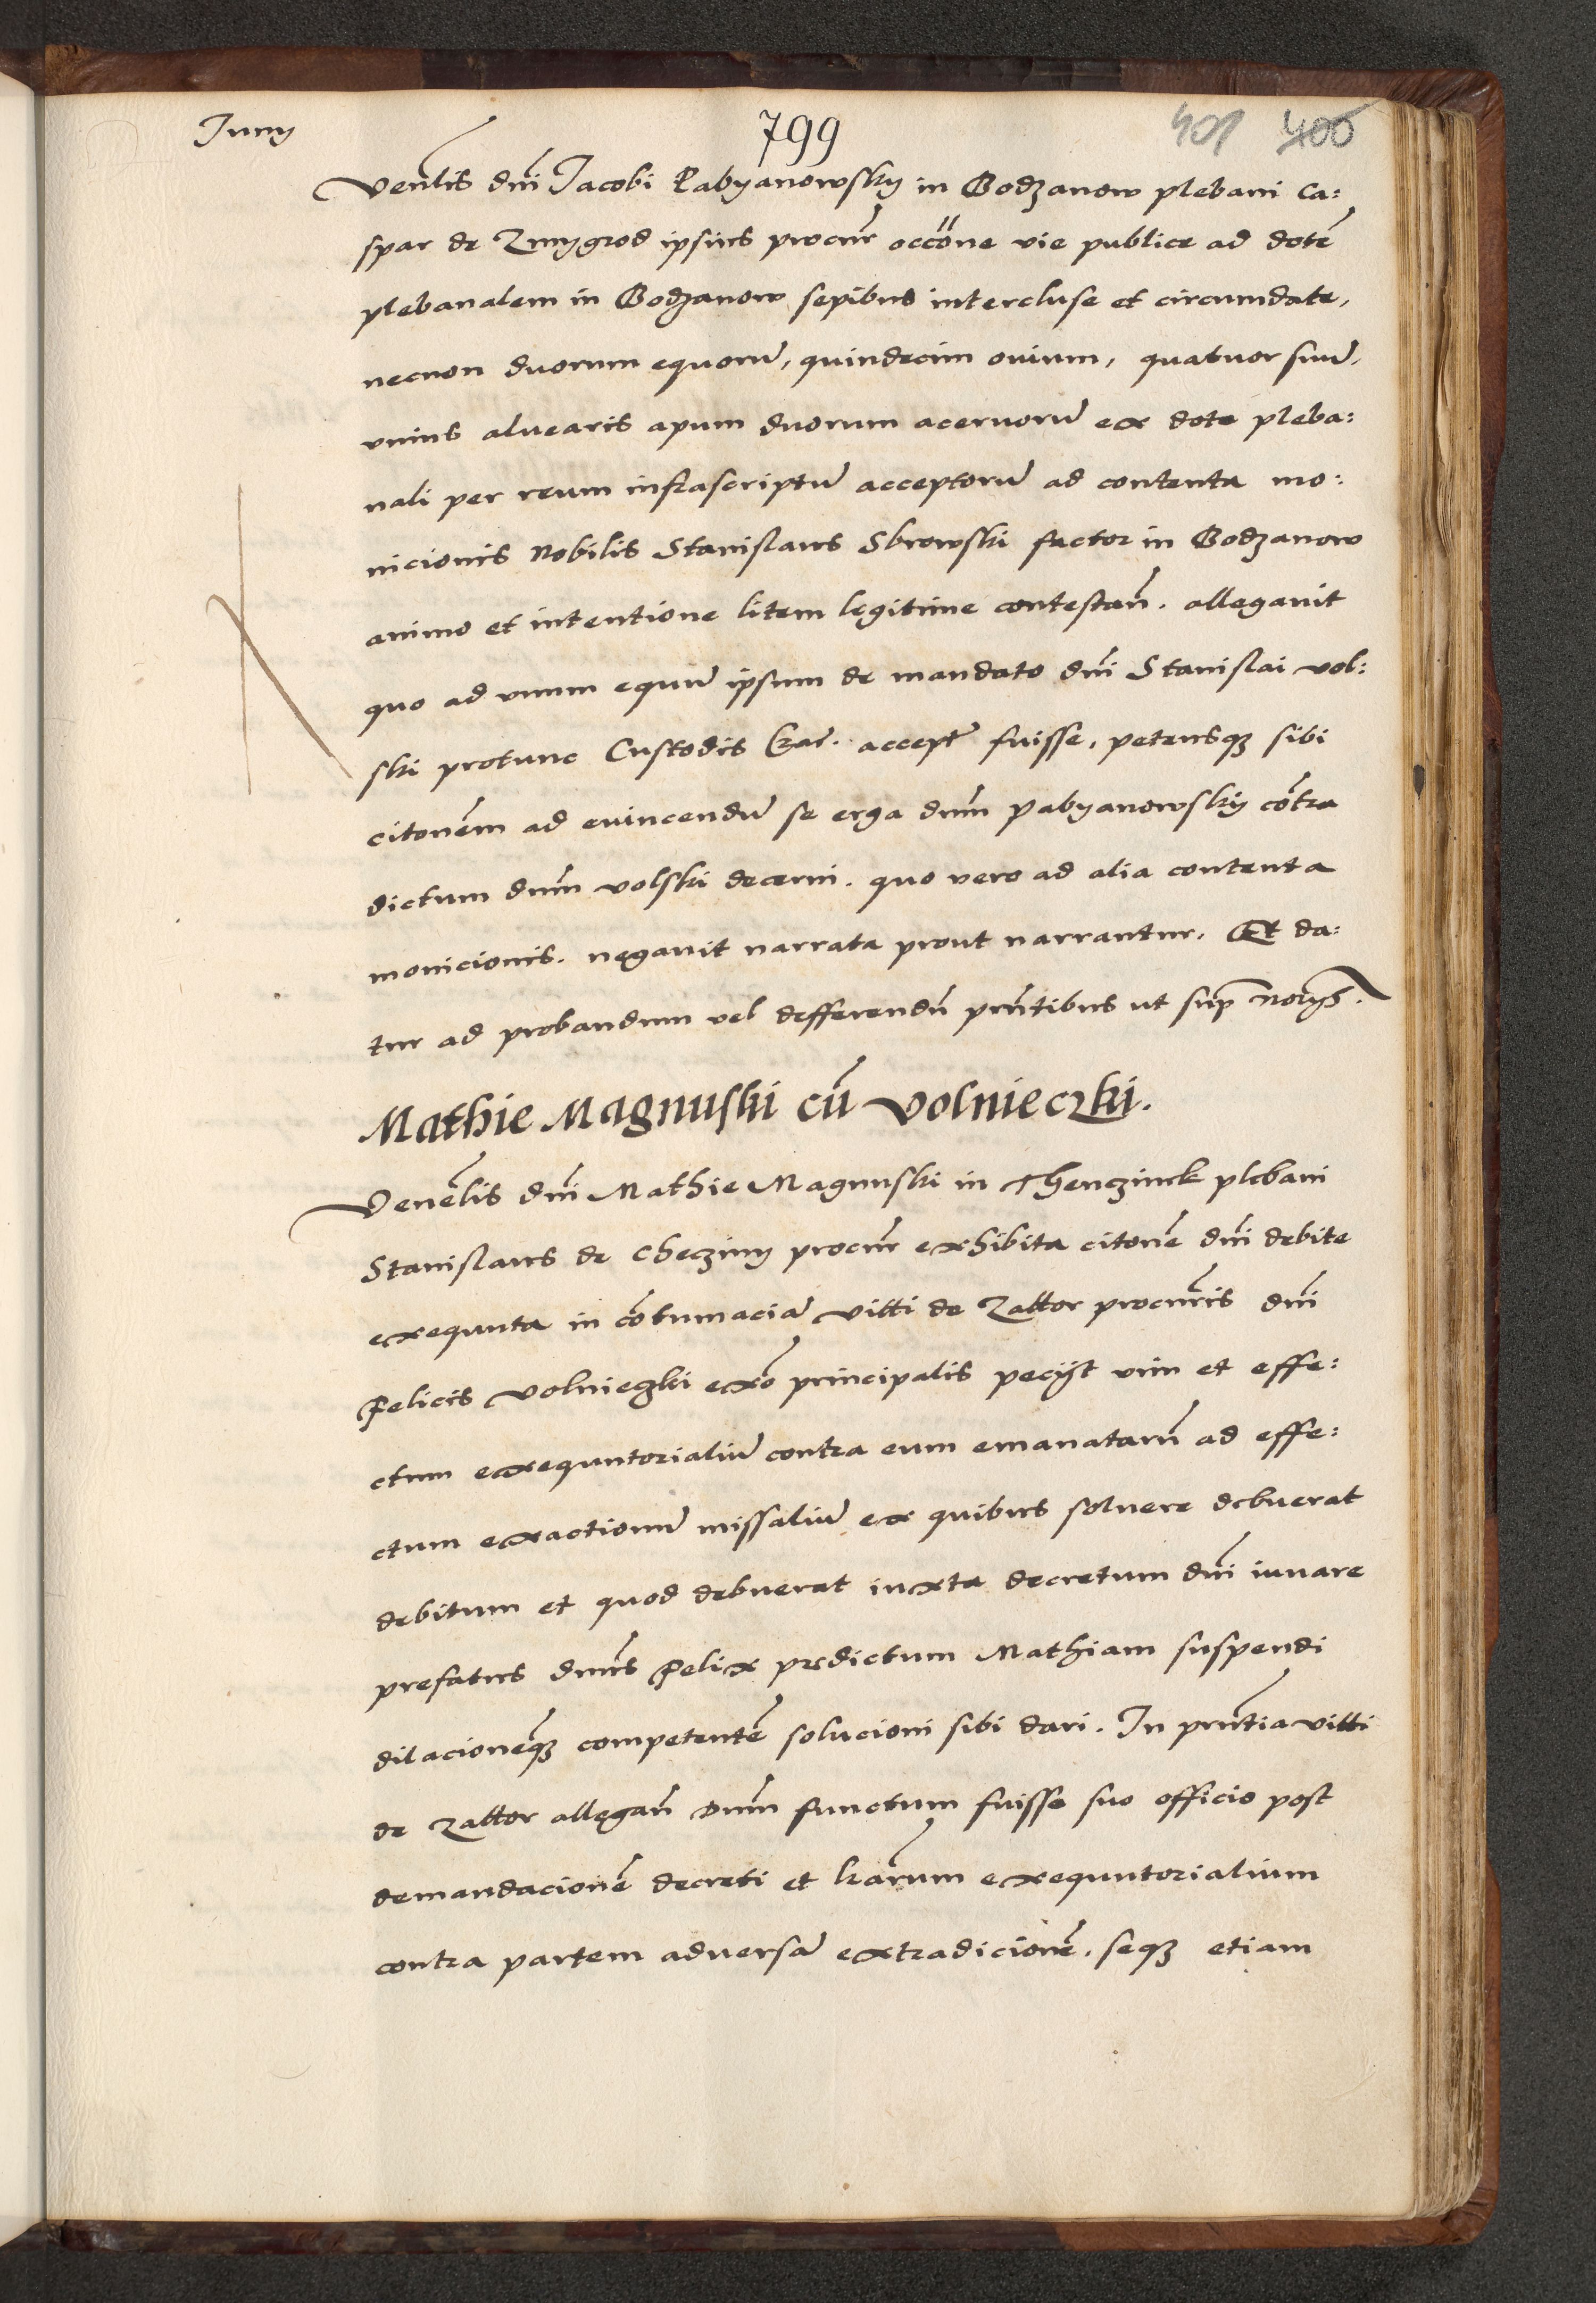 Juny 799 401 400
Venlis dni Jacobi Pabyanowsky in Bodzanow plebani Ca:
spar de Zmygrod ipsius procur occone vie publice ad dotem
plebanalem in Bodzanow sepibus intercluse et circumdate,
necnon duorum equoru, quindecim ouium, quatuor suu,
vnius aluearis apum duorum aceruoru ex dote pleba:
nali per reum infrascriptu acceptoru ad contenta mo:
nicionis Nobilis Stanislaus Sbrowski factor in Bodzanow
animo et intentione litem legitime contestan. allegauit
quo ad vnum equu ipsum de mandato dni Stanislai vol:
ski protunc Custodis accept fuisse, petensq3 sibi
citonem ad euincendu se erga dnm Pabyanowsky contra
dictum dnm volski decerni. quo vero ad alia contenta
monicionis. negauit narrata prout narrantur. Et da:
tur ad probandum vel defferendu prntibus ut sup
Mathie Magnuski cu Volnieczki.
Venelis dni Mathie Magnuski in Thenczinek plebani
Stanislaus de Checziny procur exhibita citone dni debite
exequuta in cotumacia Vitti de Zattor procuris dni
Felicis Volnieczki exo principalis pecijt vim et effe:
ctum exequutorialiu contra eum emanataru ad effe:
ctum exactionu missaliu ex quibus soluere debuerat
debitum et quod debuerat iuxta decretum dni iuuare
prefatus dnus Felix predictum Mathiam suspendi
dilacioneq3 competente solucioni sibi dari. In prntia vitti
de Zattor allegan Dnm functum fuisse suo officio post
demandacione decreti et lrarum exequutorialium
contra partem aduersa extradicione, seq3 etiam